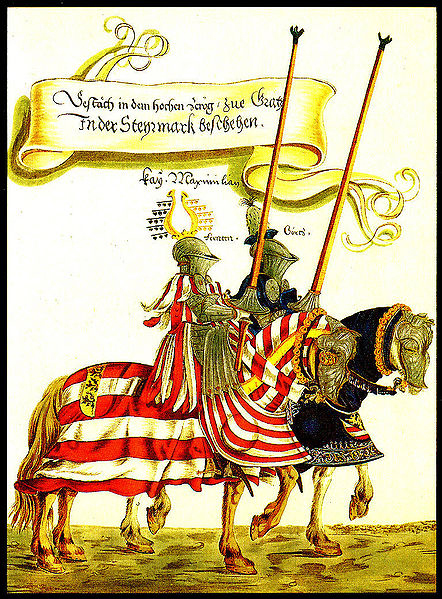 Gestäch in dem hochen Zeüg, zue Grätz
In der Steyrmark beschehen.
Kaÿ. Maximilian